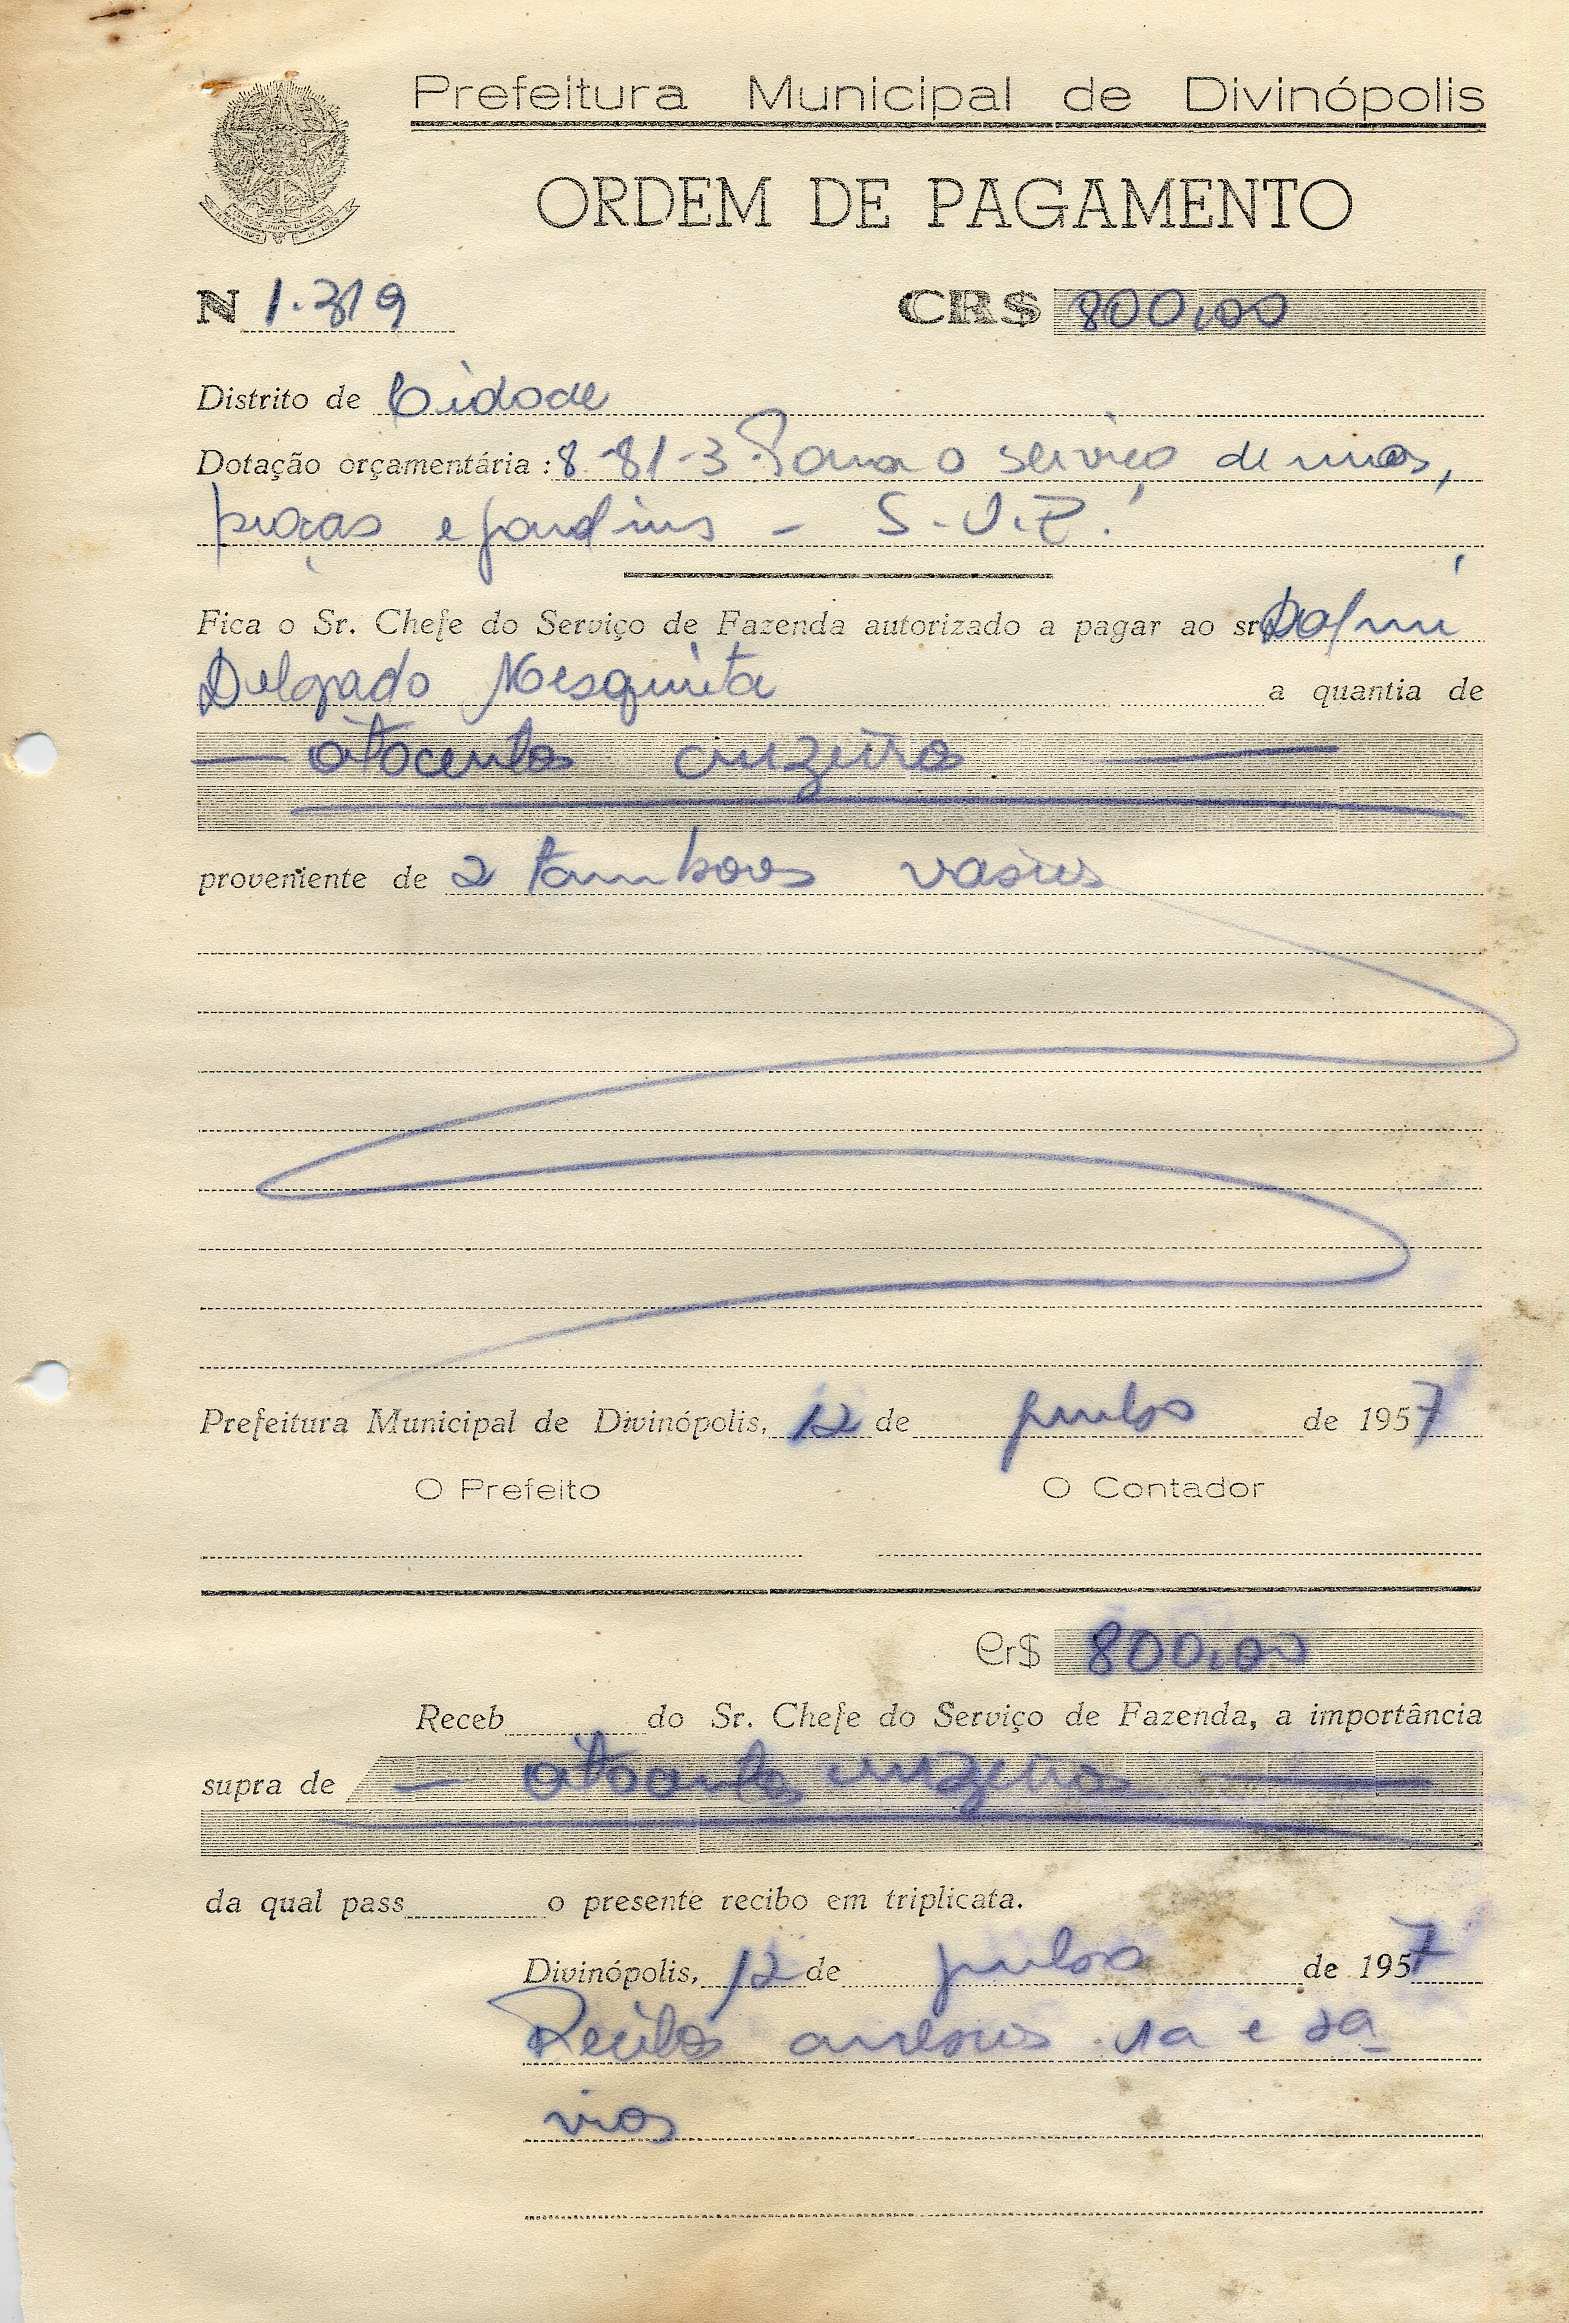 Prefeitura Municipal de Divinópolis
ORDEM DE PAGAMENTO
N 1.319 CR$ 800,00
Distrito de Cidade
Dotação orçamentária: 8-81-3. Para o serviço de ruas,
praças e jardins - S.U.P.
Fica o Sr. Chefe do Serviço de Fazenda autorizado a pagar ao sr. Dalmi
Delgado Mesquita a quantia de
— oitocentos cruzeiros —
proveniente de 2 tambores vasios
Prefeitura Municipal de Divinópolis, 12 de julho de 1957
O Prefeito O Contador
Cr$ 800,00
Receb do Sr. Chefe do Serviço de Fazenda, a importância
supra de — oitocentos cruzeiros —
da qual pass o presente recibo em triplicata.
Divinópolis, 12 de julho de 1957
Recibos anexos 1a e 2a
vias